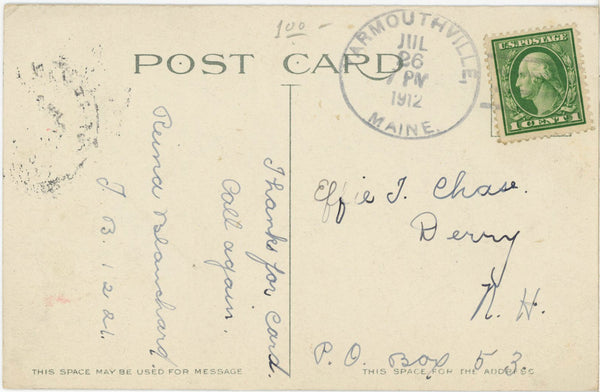 1.00 -
POST CARD
YARMOUTHVILLE,
JUL
26
7 PM
1912
MAINE.
U.S. POSTAGE
1 CENT 1
Thanks for Card.
Call again.
Reina Blanchard
T. B. 1 2 21.
Effie T. Chase.
Derry
N. H.
P. O. Box 53.
THIS SPACE MAY BE USED FOR MESSAGE
THIS SPACE FOR THE ADDRESS